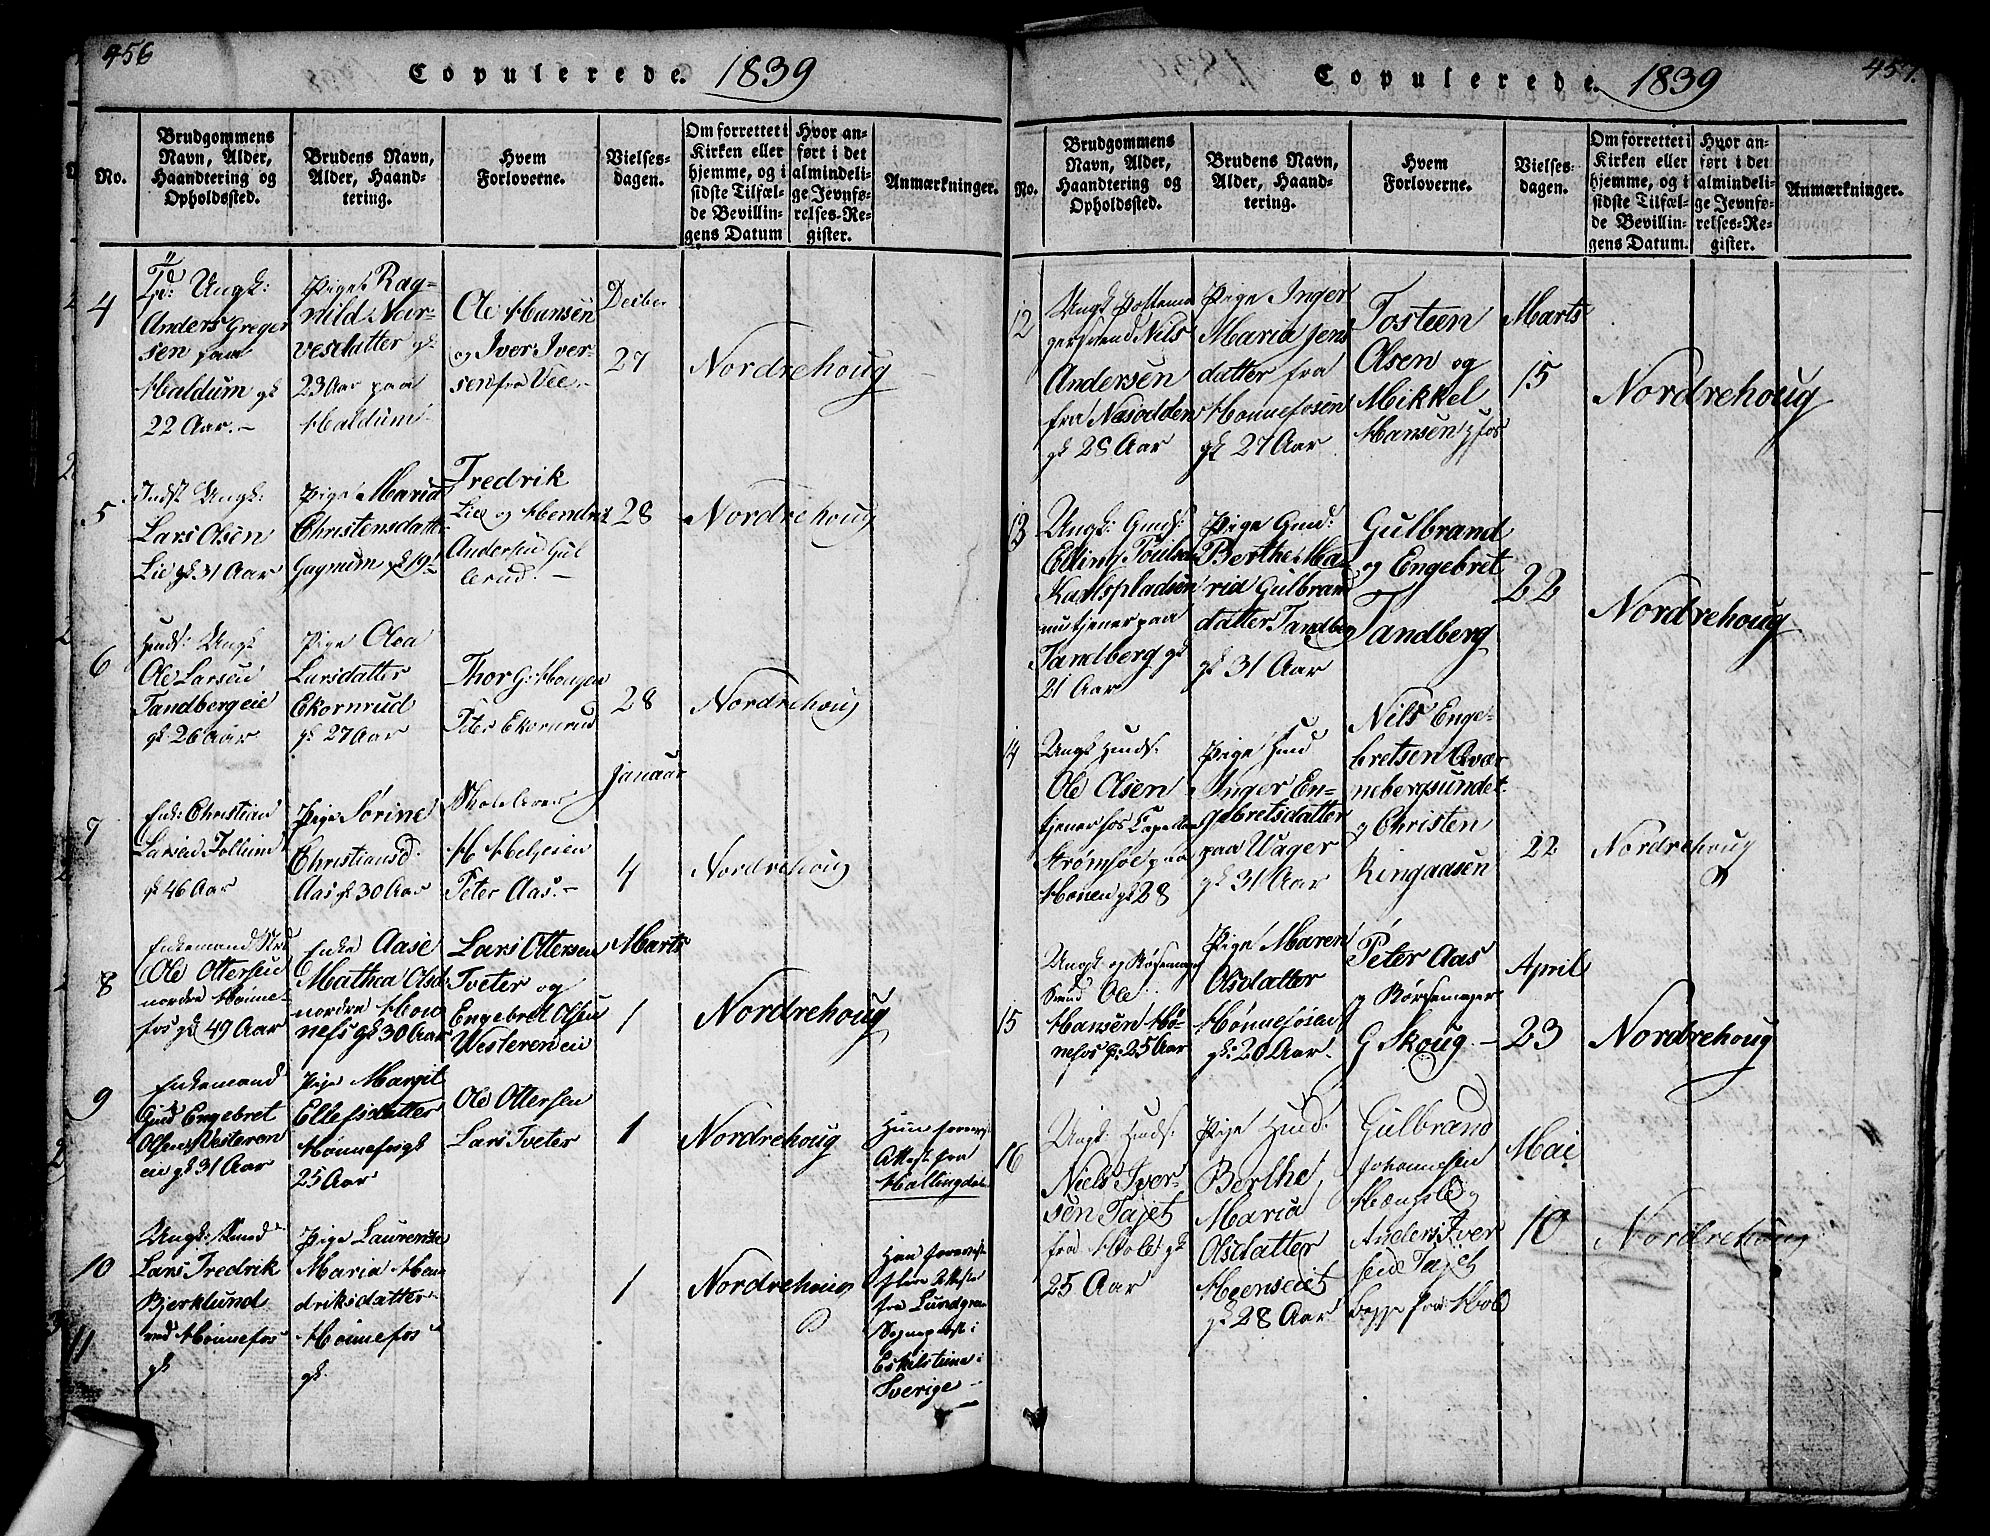 456
Copulerede. 1839
No.
Brudgommens
Navn, Alder,
Haandtering og
Opholdssted.
Brudens Navn,
Alder, Haand-
tering.
Hvem
Forloverne.
Vielses-
dagen.
Om forrettet i
Kirken eller
hjemme, og i
sidste Tilfæl-
de Bevillin-
gens Datum
Hvor an-
ført i det
almindeli-
ge Jevnfø-
relses-Re-
gister.
Anmærkninger.
4
Ungk:
Anders Greger
sen paa
Haldum gl
22 Aar.-
Pige Rag-
nild Nar-
vesdatter gl
23 Aar paa
Haldum
Ole Hansen
og Iver Iver-
sen fra Vee.-
Decbr
27
Nordrehoug
5
Indst Ungk:
Lars Olsen
Lie gl 31 Aar
Pige Maria
Christensdatt
gl 19
Fredrik
Lie og Hendrik
Andersen Gul
lerud. -
28
Nordrehoug
6
Huusm: Ungk
Ole Larsen
Tandbergeie
gl. 26 Aar
Pige Olea
Larsdatter
Ekornrud
gl 27 Aar
Thor G: Hougen
Peter Ekornrud
28
Nordrehoug
7
Enk: Christian
Larsen
gl 46 Aar
Pige Sørine
Christiansd:
Aas gl 30 Aar
Skolelærer
H Helgesen
Peter Aas.-
Januar
4
Nordrehoug
8
Enkemand
Ole Ottersen
nordre Hønne-
fos gl 49 Aar
Enke Aase
Mathea Olsd
nordre Høn
nefs gl 30 Aar
Lars Ottersen
Tveter og
Engebret Olsen
Westeren eie
Marts
1
Nordrehoug
9
Enkemand
Engebret
Olsen Westeren
eie gl 31 Aar
Pige Margit
Ellefsdatter
Hønnefos gl
25 Aar
Ole Ottersen
Lars Tveter
1
Nordrehoug
Hun foreviist
Attest fra
Hallingdal
10
Ungk:
Lars Fredrik
Bjerklund
ved Hønnefos
gl
Pige Laurense
Maria Hen
driksdatter
Hønnefos
gl.
1
Nordrehoug
Han foreviist
Attester
fra Lundgren
Sogneprest i
Eskilstuna i
Sverige -
11
457.
Copulerede. 1839
No.
Brudgommens
Navn, Alder,
Haandtering og
Opholdssted.
Brudens Navn,
Alder, Haand-
tering.
Hvem
Forloverne.
Vielses-
dagen.
Om forrettet i
Kirken eller
hjemme, og i
sidste Tilfæl-
de Bevillin-
gens Datum.
Hvor an-
ført i det
almindeli-
ge Jevnfø-
relses-Re-
gister.
Anmærkninger.
12
Ungk Pottema
gersvend Nils
Andersen
fra Næsodden
gl 28 Aar
Pige Inger
Maria Jens
datter fra
Hønnefosen
gl 27 Aar
Tosteen
Olsen og
Mikkel
Hansen
Marts
15
Nordrehoug
13
Ungk:
Elling Poulsen
Karlspladsen
nu tjener paa
Tandberg gl
21 Aar
Pige
Berthe Ma
ria Gulbran
datter Tandberg
gl 31 Aar
Gulbrand
og Engebret
Tandberg
22
Nordrehoug
14
Ungk
Ole Olsen
tjener hos
Strømsøe paa
Hønen gl 28
Pige
Inger En-
gebretsdatter
paa Wager
gl 31 Aar
Nils Enge-
bretsen Qvær
nebergsundet
og Christen
Ringaasen
22
Nordrehoug
15
Ungk og Børsemager
Svend Ole
Hansen Hø-
nefos gl: 25 Aar
Pige Maren
Olsdatter
Hønnefosen
gl: 20 Aar
Peter Aas
og Børsemager
G Skoug. -
April
23
Nordrehoug
16
Ungk:
Niels Iver-
sen Tajet
fra Hole gl
25 Aar
Pige
Berthe
Maria
Olsdatter
gl 28 Aar
Gulbrand
Johannesen
og
Anders Iver
sen Tajet
begge fra Hole
Mai
10
Nordrehoug